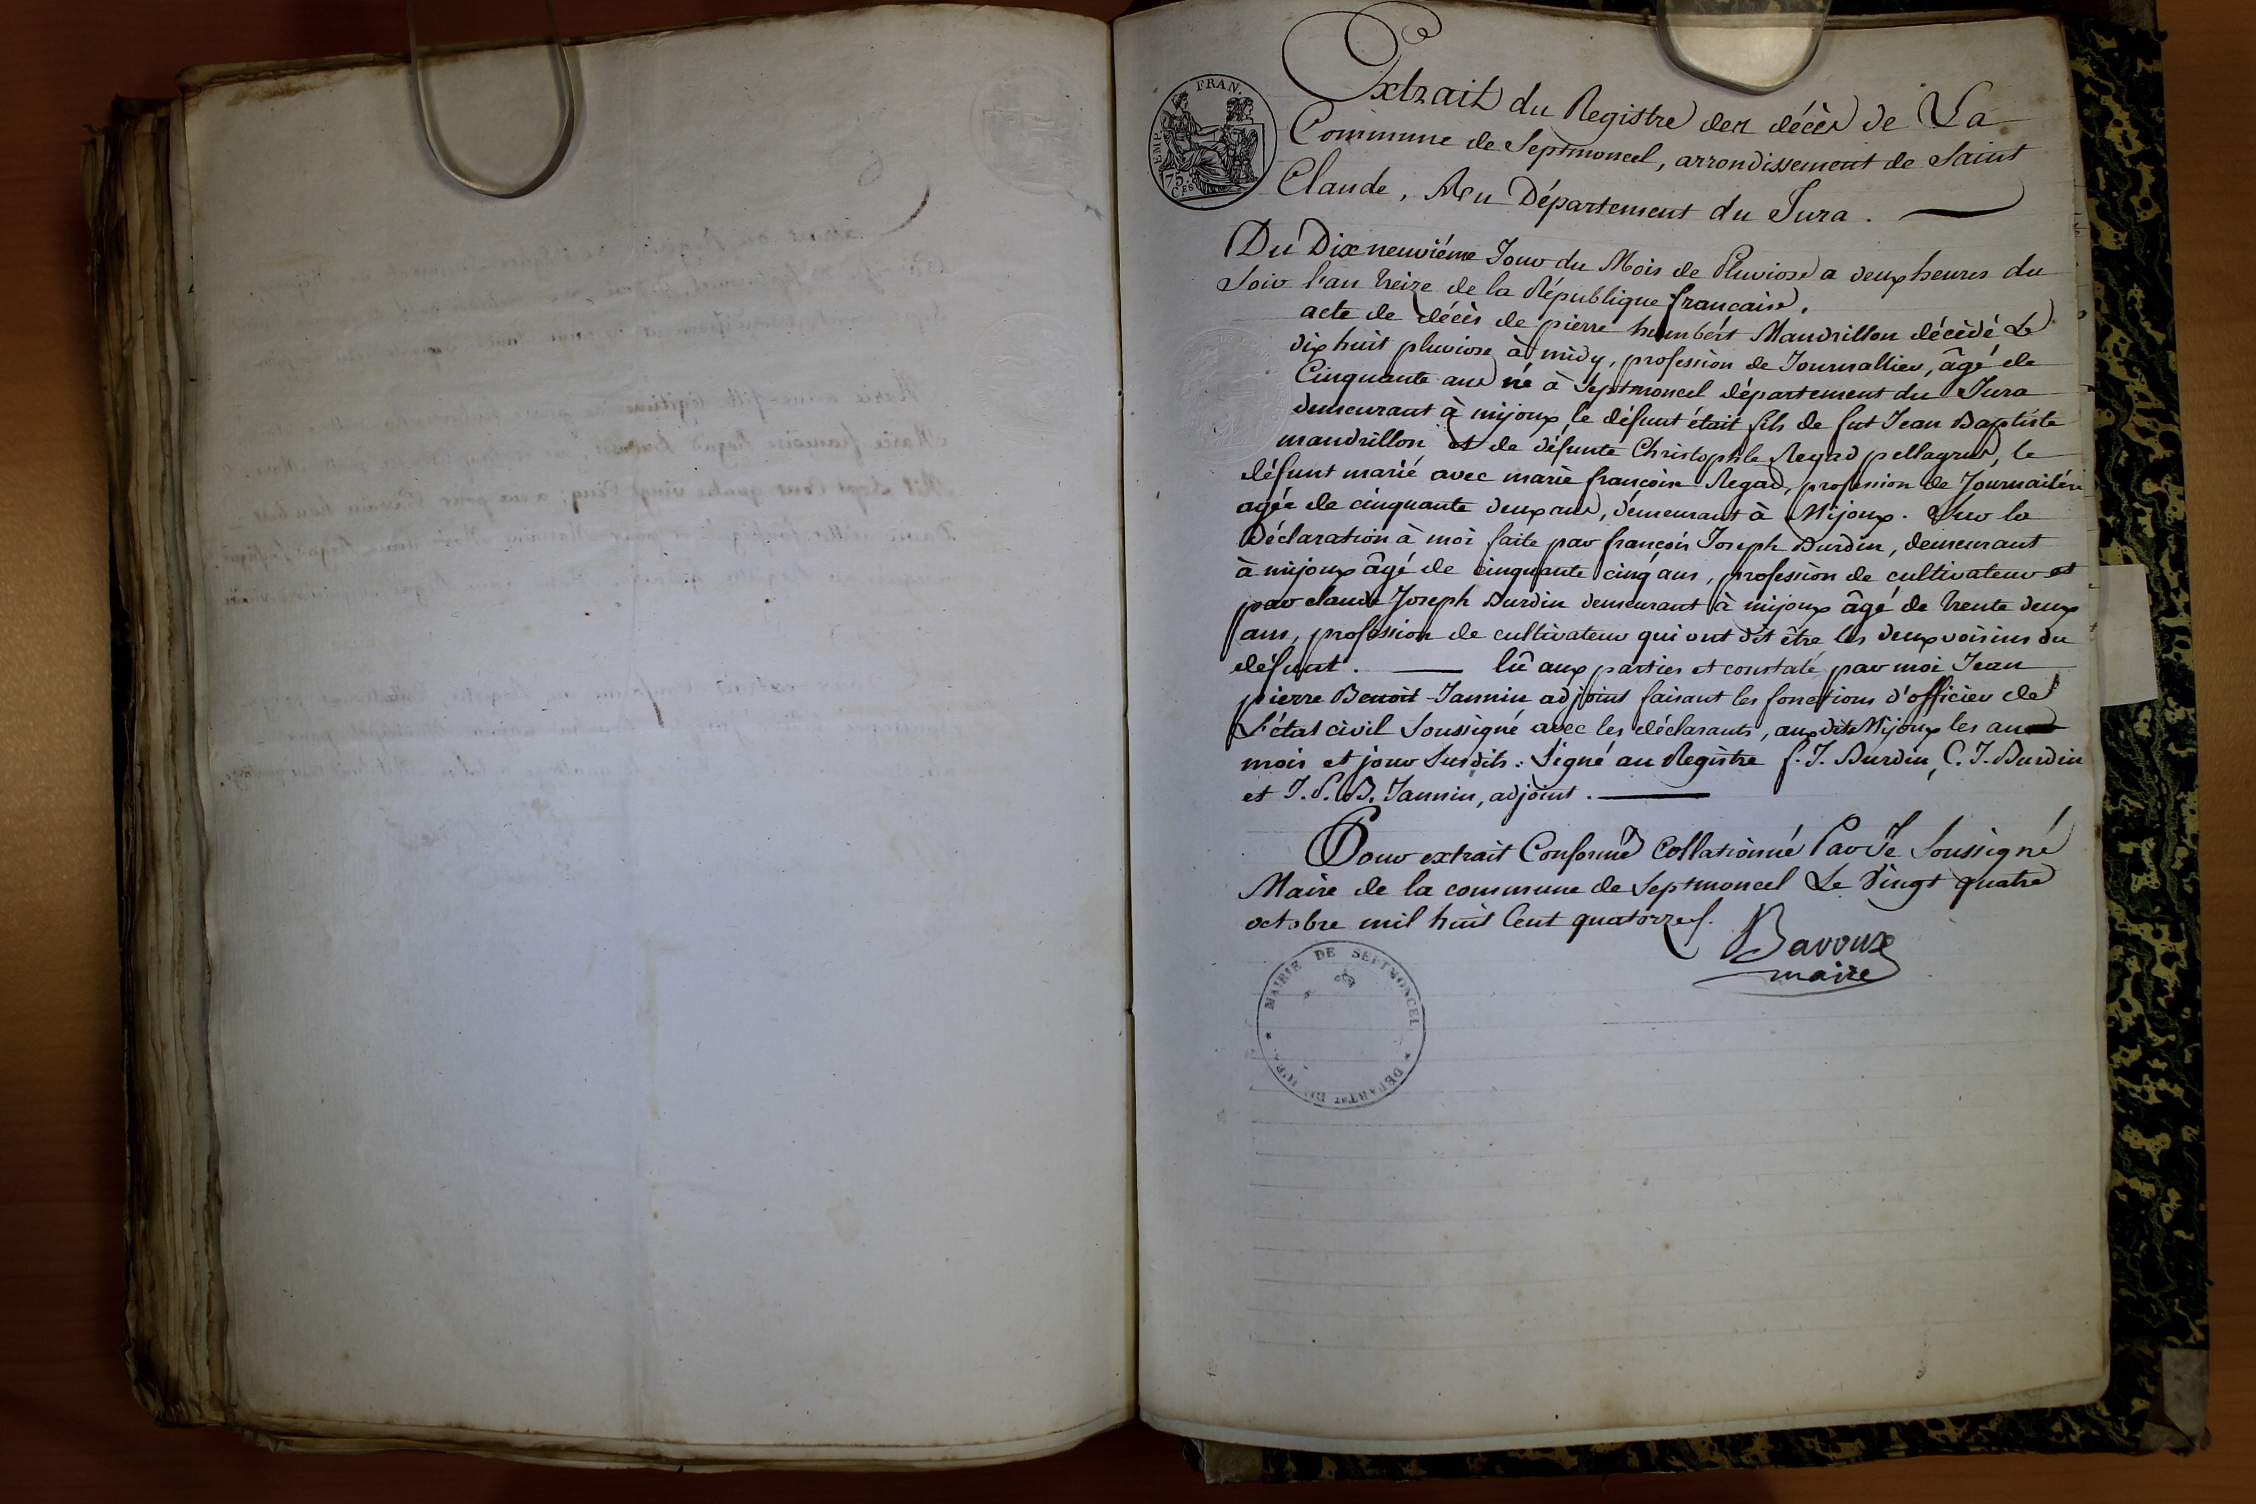 EMP. FRAN.
75
CES
Extrait du Registre des décès de La
Commune de Septmoncel, arrondissement de Saint
Claude, Au Département du Jura.
Du Dix neuviéme Jour du Mois de Pluviose a deux heures du
Soir l'an treize de la République francaise.
acte de décès de pierre humbért Mandrillon décédé Le
dix huit pluviose à midy, profession de Journallier, âgé de
Cinquante ans né à Septmoncel département du Jura
demeurant à mijoux, le défunt était fils de fut Jean Baptiste
mandrillon et de défunte Christophle Regad pellagrud, le
défunt marié avec marie francoise Regad, profession de Journailére
agée de cinquante deux ans, demeurant à Mijoux. Sur la
Déclaration à moi faite par françois Joseph Burdin, demeurant
à mijoux âgé de cinquante cinq ans, profession de cultivateur et
par claude Joseph Burdin demeurant à mijoux âgé de trente deux
ans, profession de cultivateur qui ont dit être les deux voisins du
défunt. lû aux parties et constaté par moi Jean
pierre Benoit Jannin adjoint faisant les fonctions d'officier de
L'état civil Soussigné avec les déclarants, aux dits Mijoux les an
mois et jour Susdits. Signé au Registre f. J. Burdin, C. J. Burdin
et J. P. B. Jannin, adjoint.
Pour extrait Conforme Collationné Par Je Soussigné
Maire de la commune de Septmoncel Le Vingt quatre
octobre mil huit Cent quatorze.
Bavoux
maire
MAIRIE DE SEPTMONCEL * DÉPART.NT DU JURA *